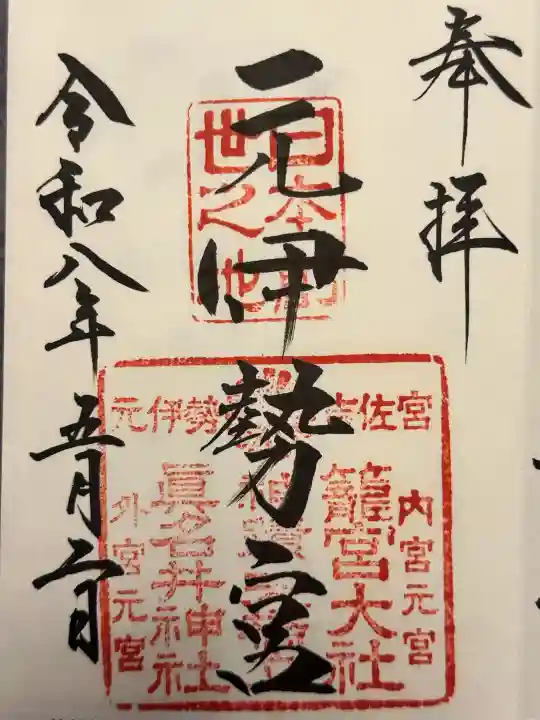 奉拝
元伊勢宮
令和八年五月二日
世之地
宮
佐
吉
勢
伊
元
内宮元宮
籠宮大社
眞名井神社
外宮元宮